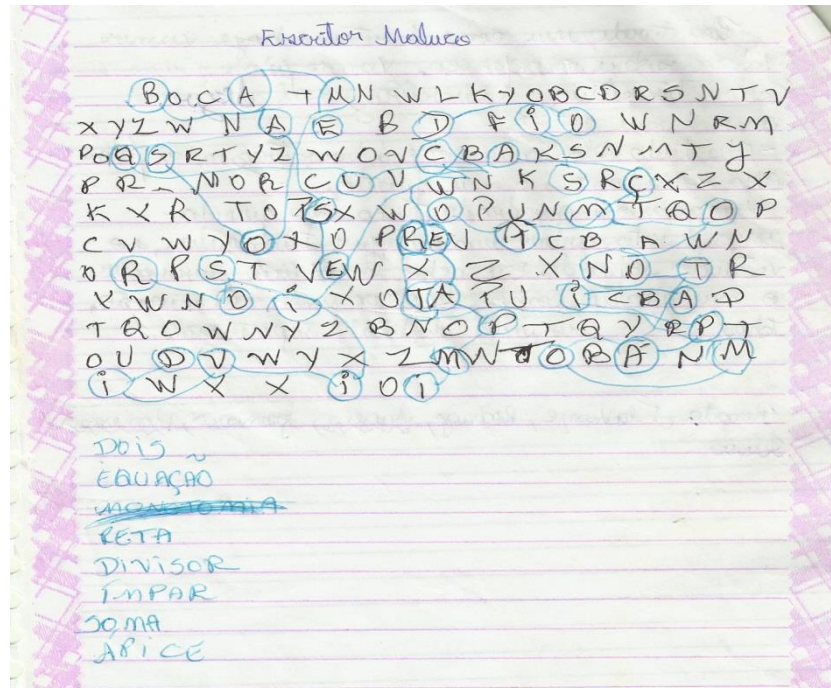 Escritor Maluco
B O C A T M N W L K Y O B C D R S N T V
X Y Z W N A E B D F i O W N R M
P O Q S R T Y Z W O V C B A K S N M T Y
P R M O R C U V W N K S R Ç X Z X
K X R T O P S X W O P U N M T Q O P
C V W Y O X O P R E V A C B A W N
O R P S T V E W X Z X N O T R
X W N O i X O T A P U i C B A P
T Q O W N Y Z B N O P T Q Y R P T
O U D V W Y X Z M W T O B A N M
i W X X i O i
DOiS
EQUAÇÃO
RETA
DiViSOR
ÍMPAR
SOMA
ÁPiCE